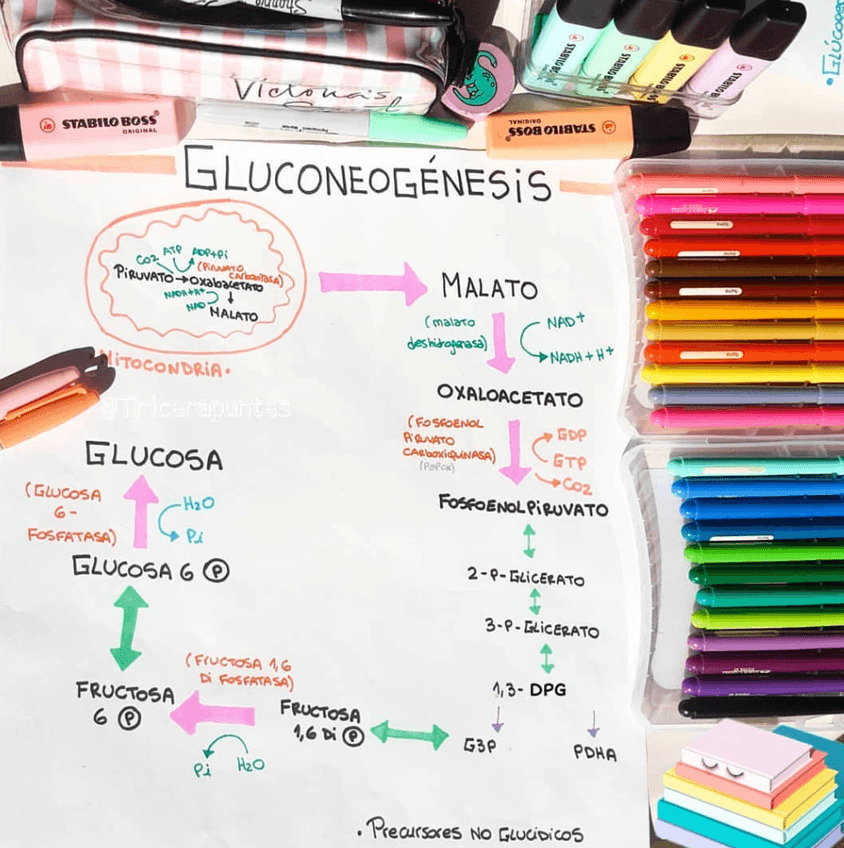 Victoria's
Secret
STABILO BOSS
ORIGINAL
STABILO BOSS
ORIGINAL
GLUCONEOGÉNESIS
ATP ADP+Pi
CO2 (PIRUVATO
CARBOXILASA)
PIRUVATO → OXALOACETATO
NADH+H+
NAD MALATO
MITOCONDRIA.
@Tricerapuntes
MALATO
(malato
deshidrogenasa)
NAD+
NADH + H+
OXALOACETATO
(FOSFOENOL
PIRUVATO
CARBOXIQUINASA)
(PEPCK)
GDP
GTP
CO2
FOSFOENOLPIRUVATO
2-P-GLICERATO
3-P-GLICERATO
1,3- DPG
G3P
PDHA
FRUCTOSA
1,6 Di P
(FRUCTOSA 1,6
Di FOSFATASA)
Pi H2O
FRUCTOSA
6 P
GLUCOSA 6 P
(GLUCOSA
6-
FOSFATASA)
H2O
Pi
GLUCOSA
. PRECURSORES NO GLUCÍDICOS